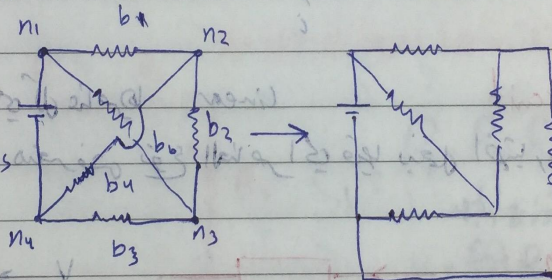 b1
n1
n2
b2
b6
b4
n4
b3
n3